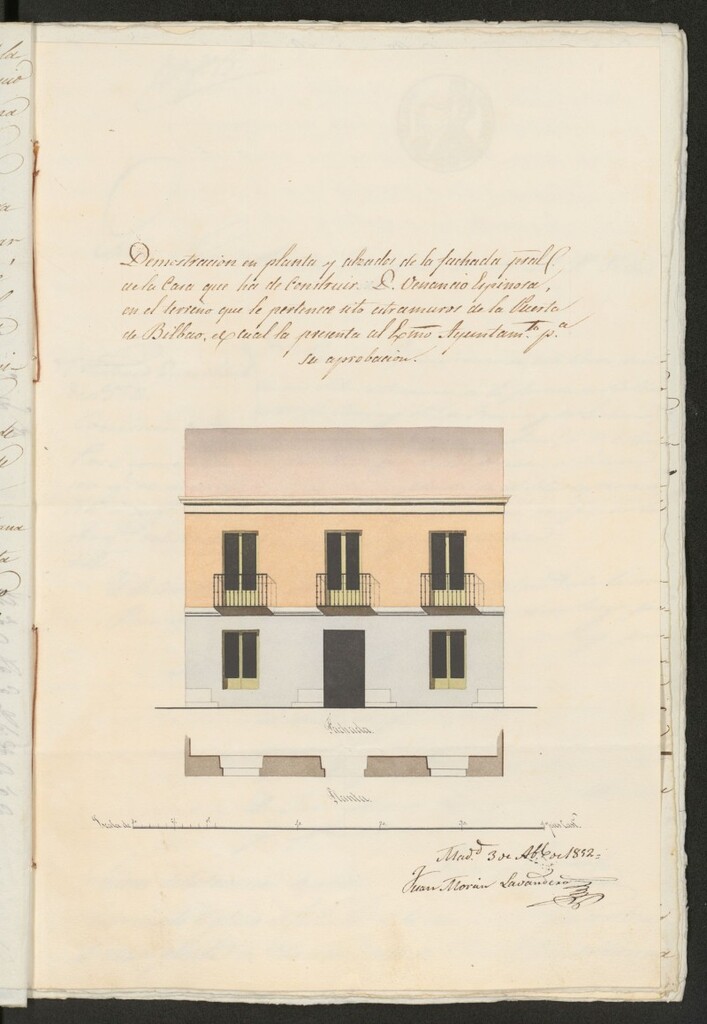 Demostracion en planta y alzados de la fachada pral.
de la Casa que ha de Construir D. Venancio Espinosa,
en el terreno que le pertenece sito estramuros de la Puerta
de Bilbao, el cual la presenta al Exmo Ayuntamto. pa.
su aprobacion.
Fachada.
Planta.
Escala de
Madd. 3 de Abl. de 1852=
Juan Morán Lavandera